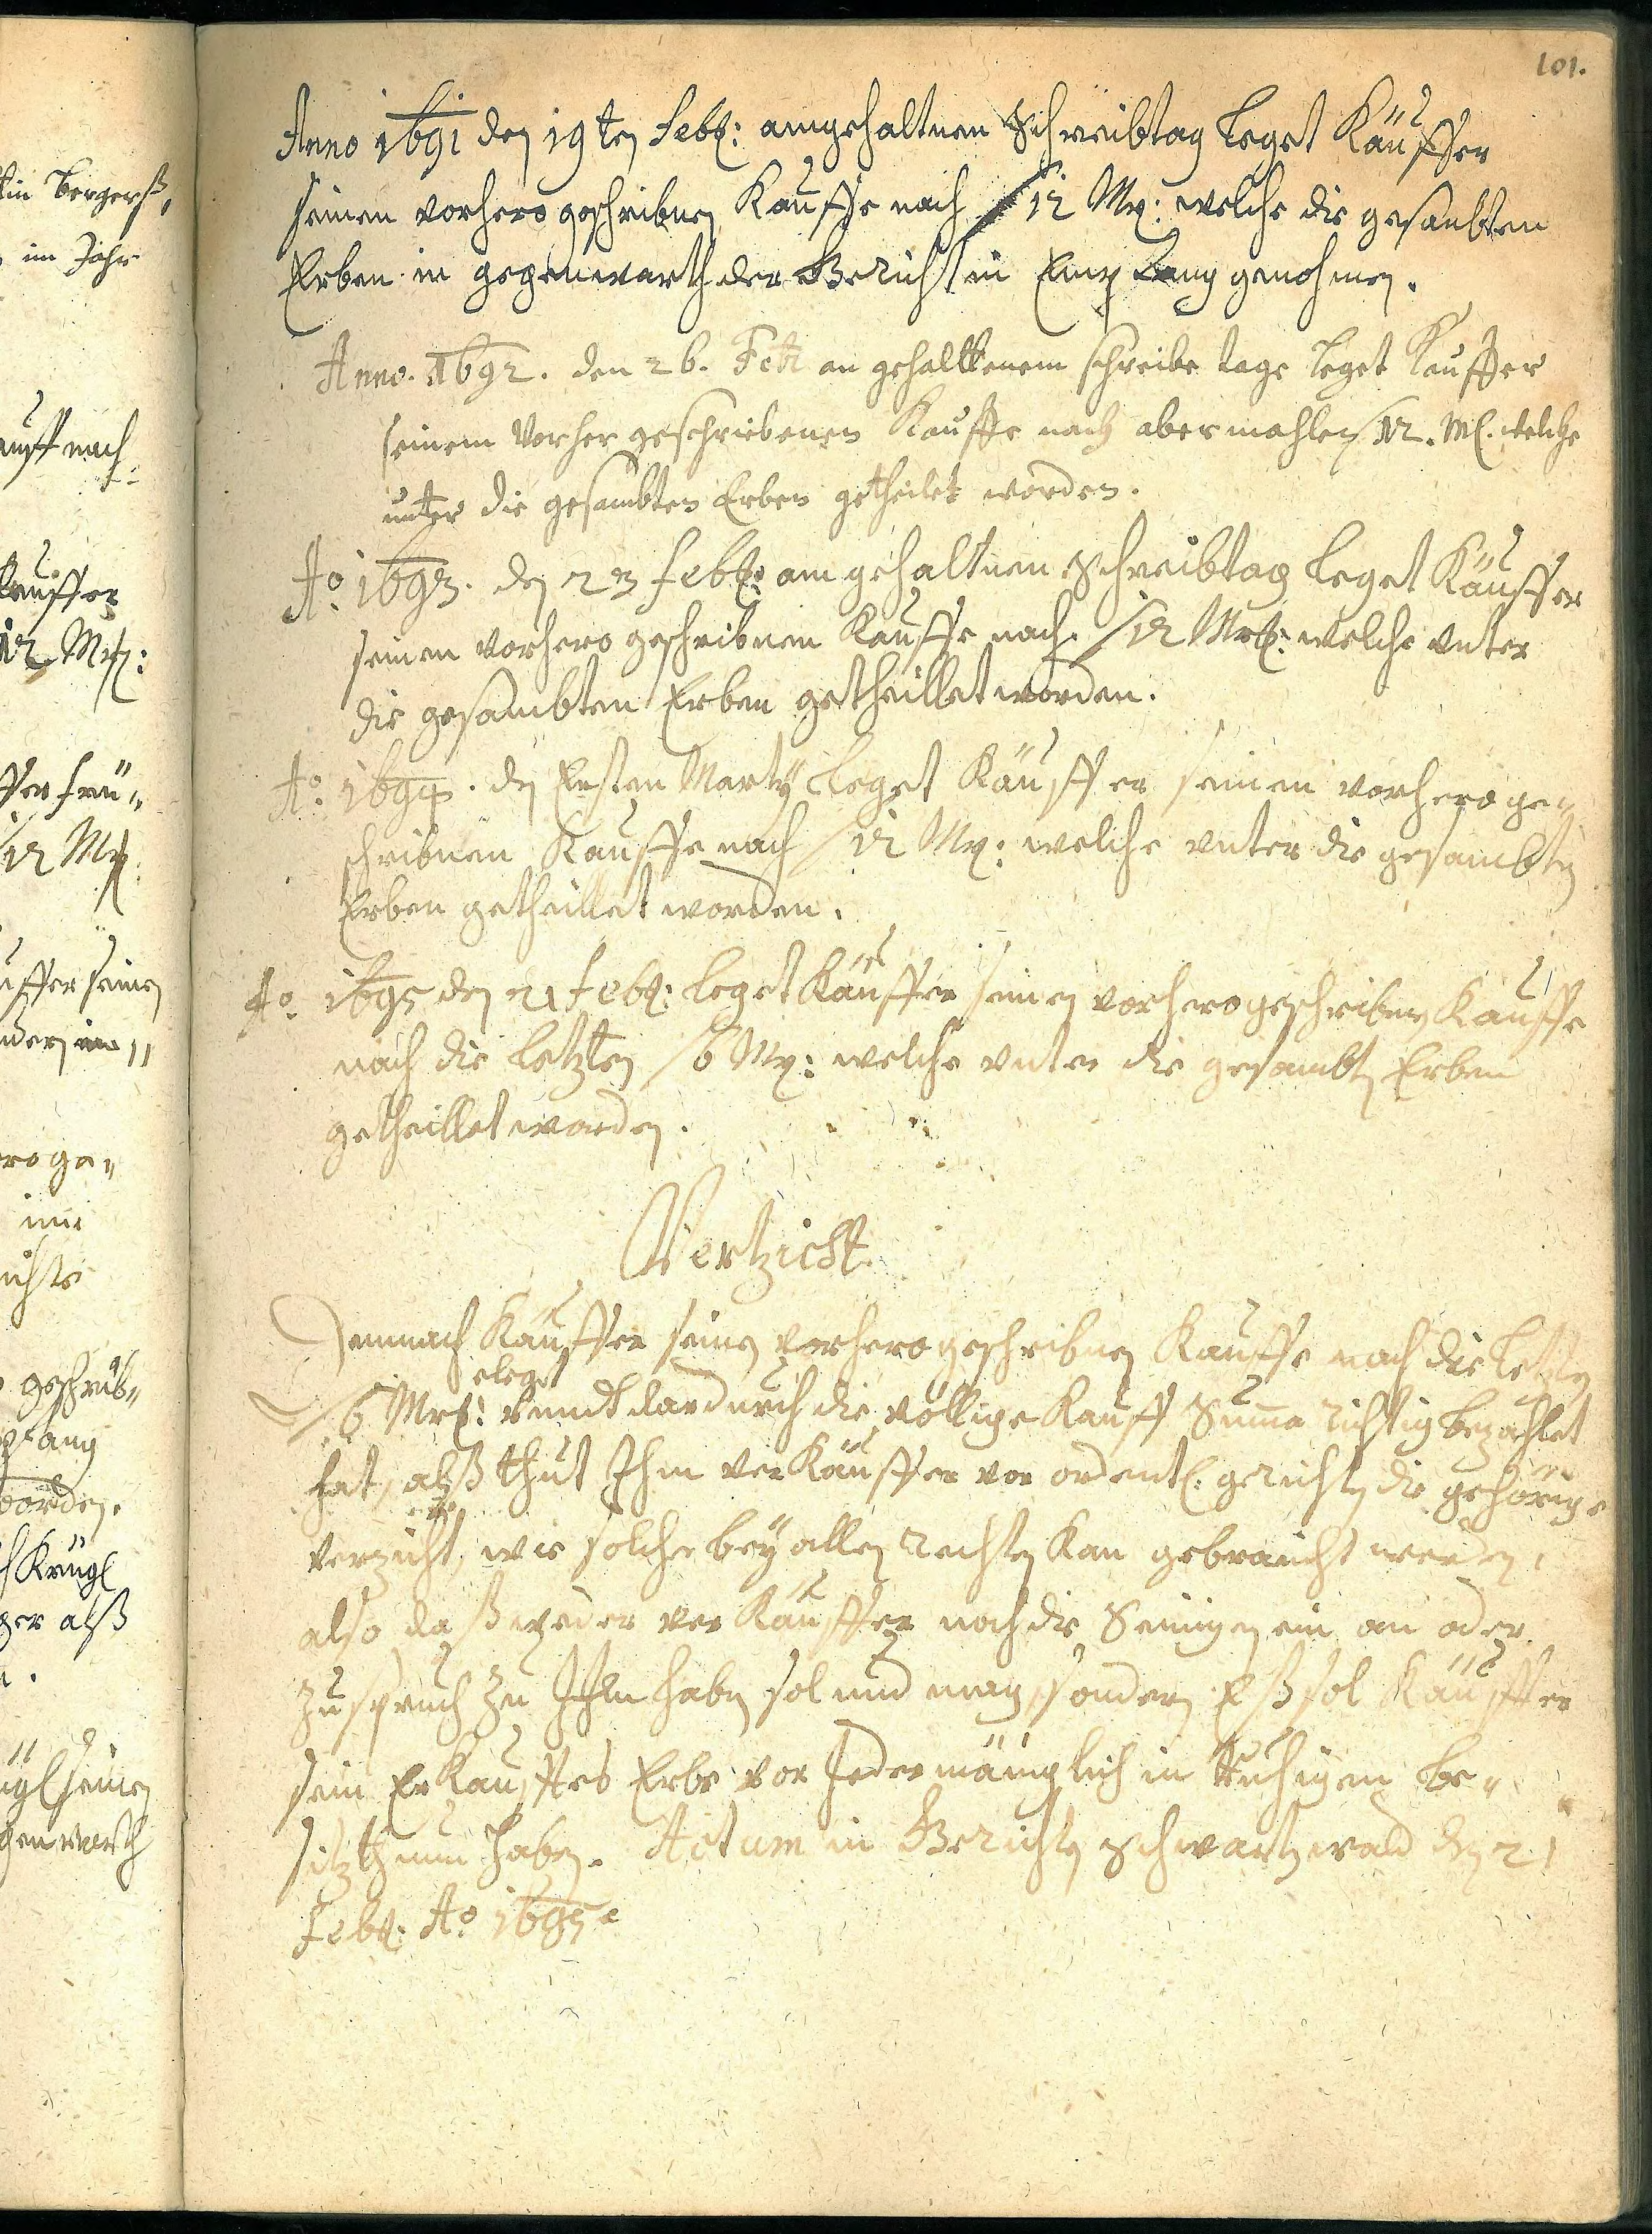 101.
Anno 1691 den 19ten Febr: amgehaltnen Schreibtag leget Käuffer
seinen vorhero geschribnen Kauffe nach /12 Mr: welche die gesambten
Erben in gegenwarth der Gericht in Empfang genohmen.
Anno. 1692. den 26. Febr an gehalttenem schreibe tage leget Keuffer
seinem vorher geschriebenen Kauffe nach abermahlen /12. M. welche
unter die gesambten Erben getheilet worden.
Ao: 1693. den 23 Febr: am gehaltnen Schreibtag leget Käuffer
seinen vorhero geschribnen Kauffe nach /12 Mrk: welche vnter
die gesambten Erben getheillet worden.
Ao: 1694. den Ersten Marty leget Käuffer seinen vorhero ge„
schribnen Kauffe nach /12 Mr: welche vnter die gesambten
Erben getheillet worden.
Ao. 1695 den 21 Febr: leget Käuffer seinen vorhero geschribnen Kauffe
nach die letzten /6 Mr: welche vnter die gesambten Erben
getheillet worden.
Vertzicht.
Demnach Käuffer seinen vorhero geschribnen Kauffe nach die letzten
eleget
/6 Mrk: vnndt dardurch die völlige Kauff Summa richtig bezahlet
hat, alß thut Ihm verKäuffer vor ordentl: gerichten die gehörige
verzicht, wie solche bey allen rechten kan gebraucht werden,
also daß weder verKäuffer noch die Seinigen ein an oder
zuspruch zu Ihm haben sol und mag, sondern Eß sol Käuffer
sein Erkaufftes Erbe vor Jedermäniglich in Ruhigen be„
sitzthum haben. Actum in Gerichten Schwartzwald den 21
Febr: Ao 1695.
tin bergerß,
im Jahr
auff nach
Keuffer
12 Mrk:
ffer frü„
/12 Mrk
uffer seinen
ro ge„
im
ichts
geschrib„
pfang
worden.
Krügl
ger alß
ügl seinen
gen warth